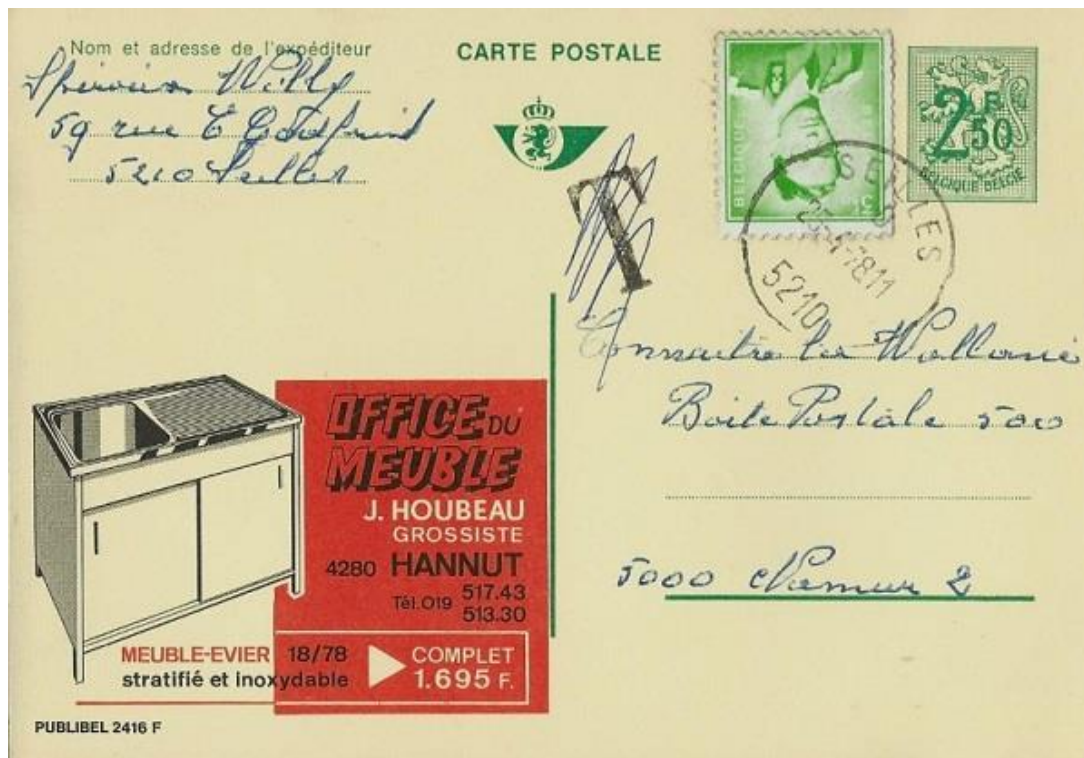 Nom et adresse de l'expéditeur
Willy
59 rue
5210 Seilles
CARTE POSTALE
T
BELGIQUE
2F50
BELGIQUE BELGIË
SEILLES
5210
Connaitre la Wallonie
Boite Postale 5000
5000 Namur 2
OFFICE DU
MEUBLE
J. HOUBEAU
GROSSISTE
4280 HANNUT
Tél.019 517.43
513.30
MEUBLE-EVIER 18/78
stratifié et inoxydable
COMPLET
1.695 F.
PUBLIBEL 2416 F